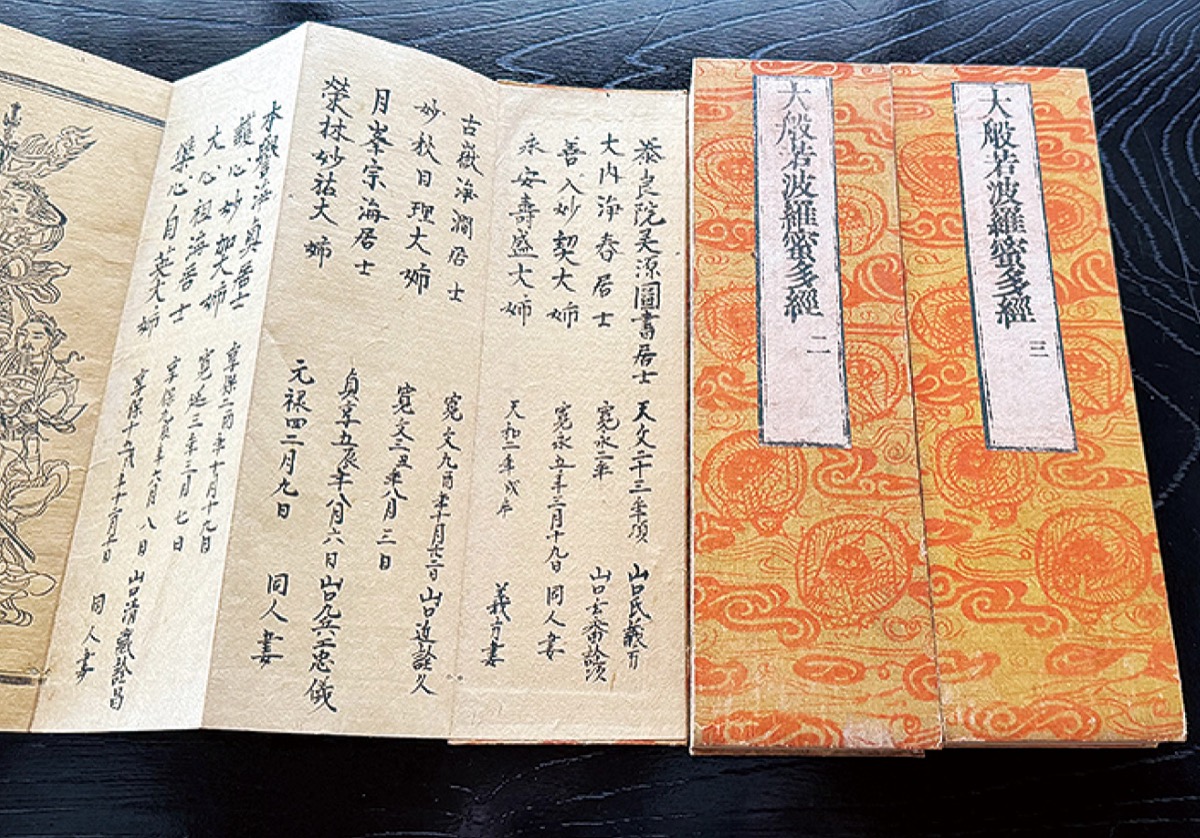 大般若波羅蜜多經 三
大般若波羅蜜多經 二
泰良院昊源圖書居士 天文二十三年頃 山口氏義方
大内浄春居士 寛永二年 山口玄齋詮頌
善入妙契大姉 寛永五年二月十九日 同人妻
永安壽盛大姉 天和二年戌年 義方妻
古嶽浄澗居士 寛文九酉年十月 山口道詮久
妙秋日理大姉 寛文三 年八月三日
月峯宗海居士 貞享五辰年八月六日 山口 忠儀
榮林妙祐大姉 元禄四二月九日 同人妻
本 海貞居士 享保二酉年十月十九日
心妙 大姉 寛延三年三月七日
大心祖海居士 享保 年六月八日 山口清 詮昌
心自 大姉 享保十 月 日 同人妻